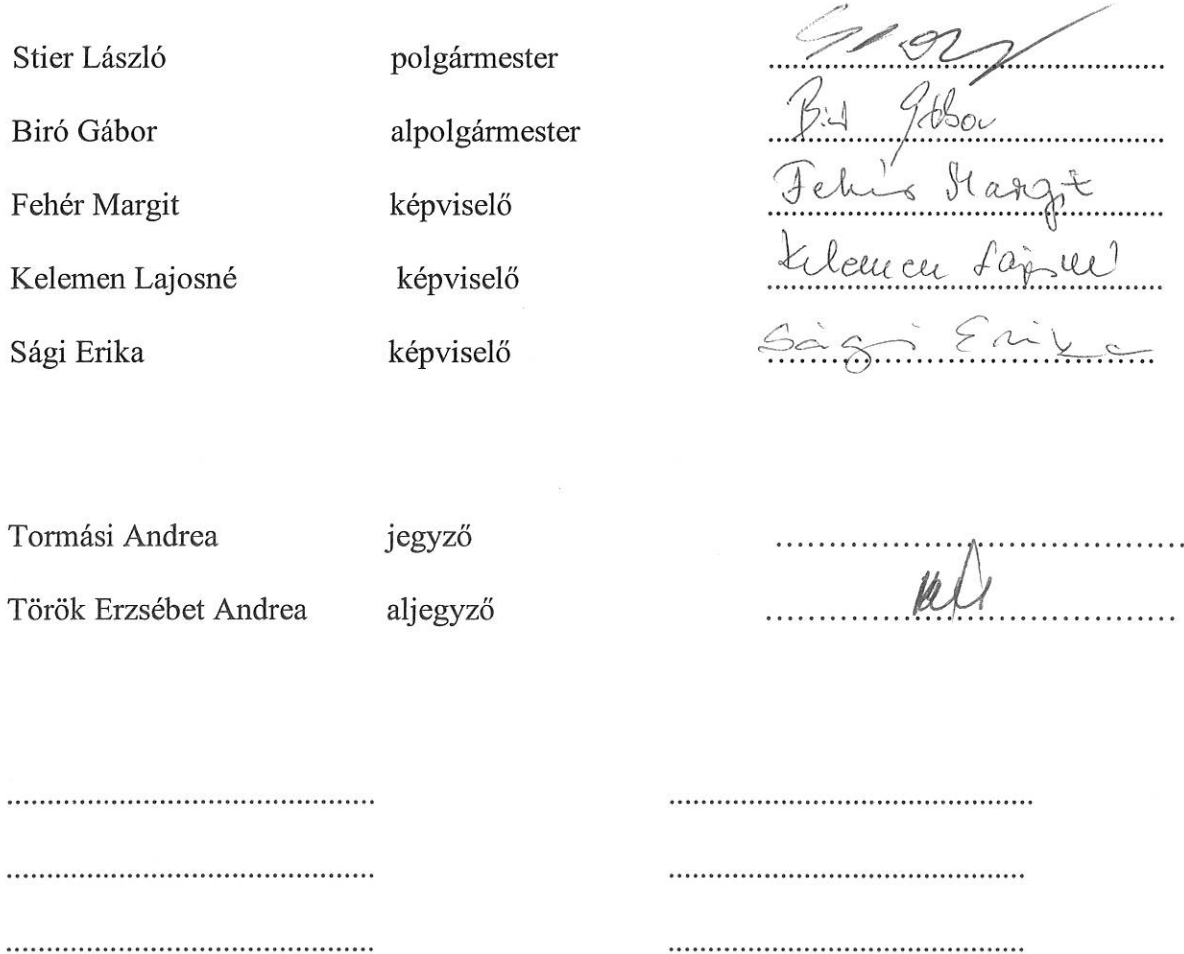 Stier László polgármester
Biró Gábor alpolgármester Biró Gábor
Fehér Margit képviselő Fehér Margit
Kelemen Lajosné képviselő Kelemen Lajosné
Sági Erika képviselő Sági Erika
Tormási Andrea jegyző
Török Erzsébet Andrea aljegyző